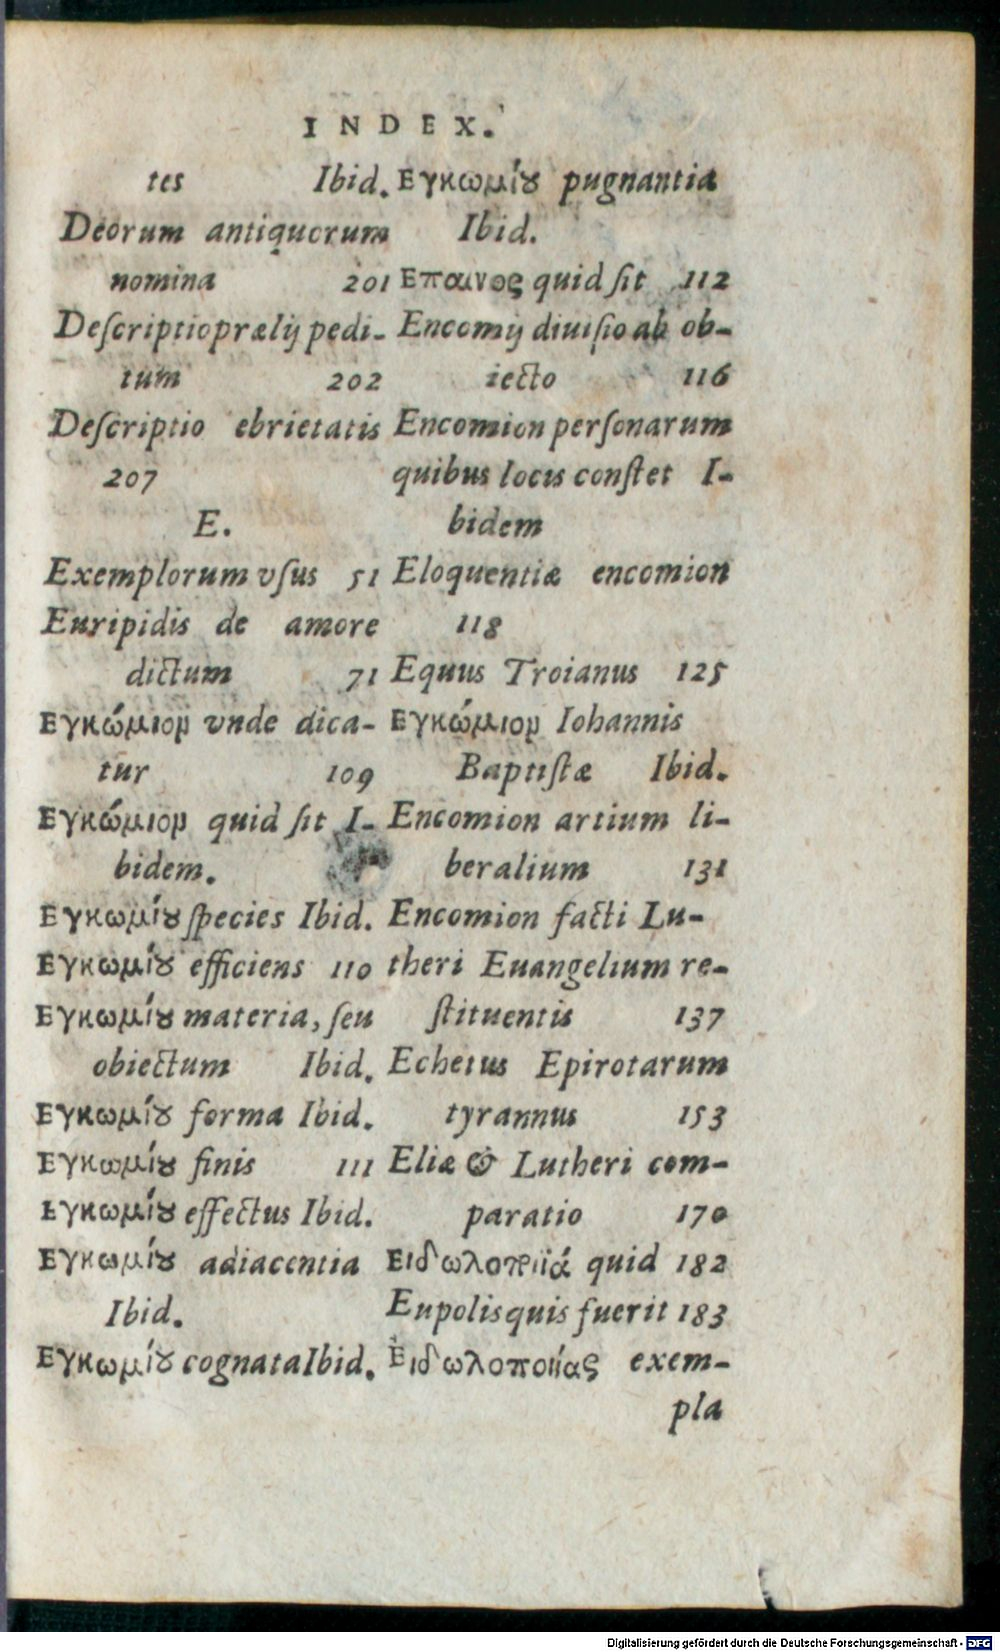 INDEX.
tes Ibid.
Deorum antiquorum
nomina 201
Deſcriptio prælij pedi-
tum 202
Deſcriptio ebrietatis
207
E.
Exemplorum vſus 51
Euripidis de amore
dictum 71
Εγκώμιον vnde dica-
tur 109
Εγκώμιον quid ſit I-
bidem.
Εγκωμίȣ ſpecies Ibid.
Εγκωμίȣ efficiens 110
Εγκωμίȣ materia, ſeu
obiectum Ibid.
Εγκωμίȣ forma Ibid.
Εγκωμίȣ finis 111
Εγκωμίȣ effectus Ibid.
Εγκωμίȣ adiacentia
Ibid.
Εγκωμίȣ cognata Ibid.
Εγκωμίȣ pugnantia
Ibid.
Επαινος quid ſit 112
Encomij diuiſio ab ob-
iecto 116
Encomion perſonarum
quibus locis conſtet I-
bidem
Eloquentiæ encomion
118
Equus Troianus 125
Εγκώμιον Iohannis
Baptiſtæ Ibid.
Encomion artium li-
beralium 131
Encomion facti Lu-
theri Euangelium re-
ſtituentis 137
Echetus Epirotarum
tyrannus 153
Eliæ & Lutheri com-
paratio 170
Ειδωλοποιϊά quid 182
Eupolis quis fuerit 183
Ἐιδωλοποιΐας exem-
pla
Digitalisierung gefördert durch die Deutsche Forschungsgemeinschaft - DFG